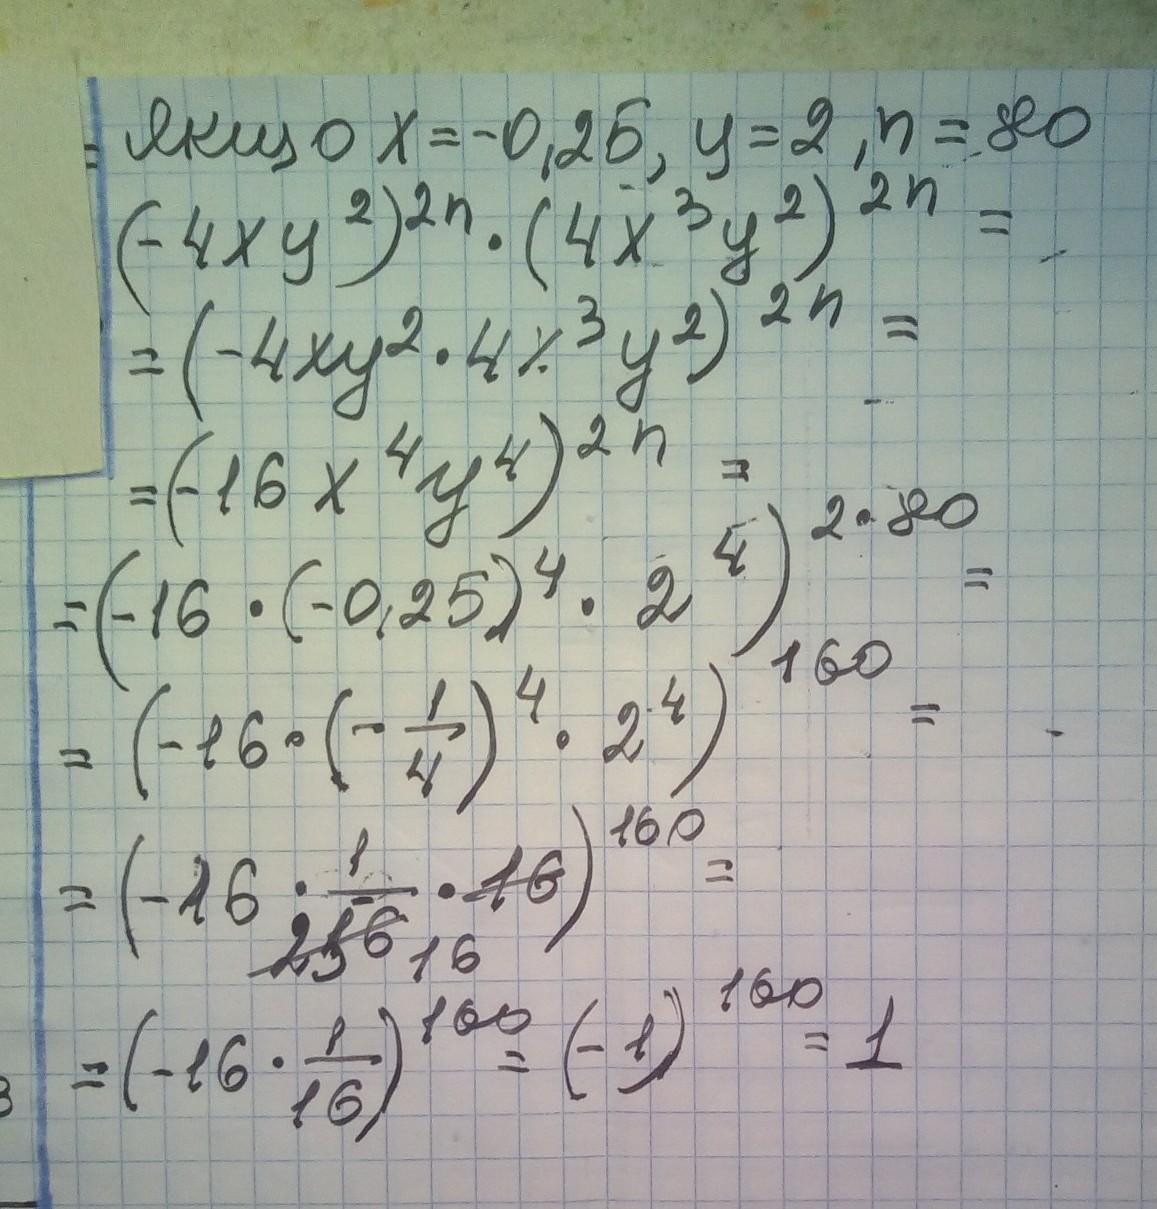 = Якщо x = -0,25, y = 2, n = 80
(-4xy²)²ⁿ · (4x³y²)²ⁿ =
= (-4xy² · 4x³y²)²ⁿ =
= (-16x⁴y⁴)²ⁿ =
= (-16 · (-0,25)⁴ · 2⁴)^(2·80) =
= (-16 · (-1/4)⁴ · 2⁴)¹⁶⁰ =
= (-16 · 1/256 · 16)¹⁶⁰ =
16
= (-16 · 1/16)¹⁶⁰ = (-1)¹⁶⁰ = 1